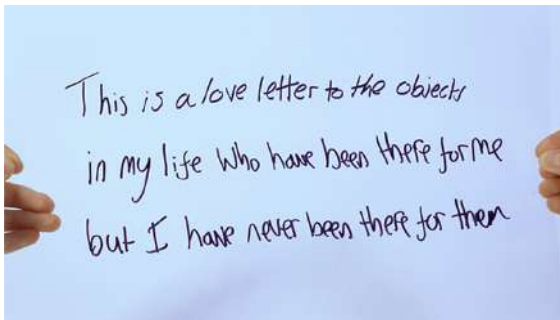 This is a love letter to the objects
in my life who have been there for me
but I have never been there for them